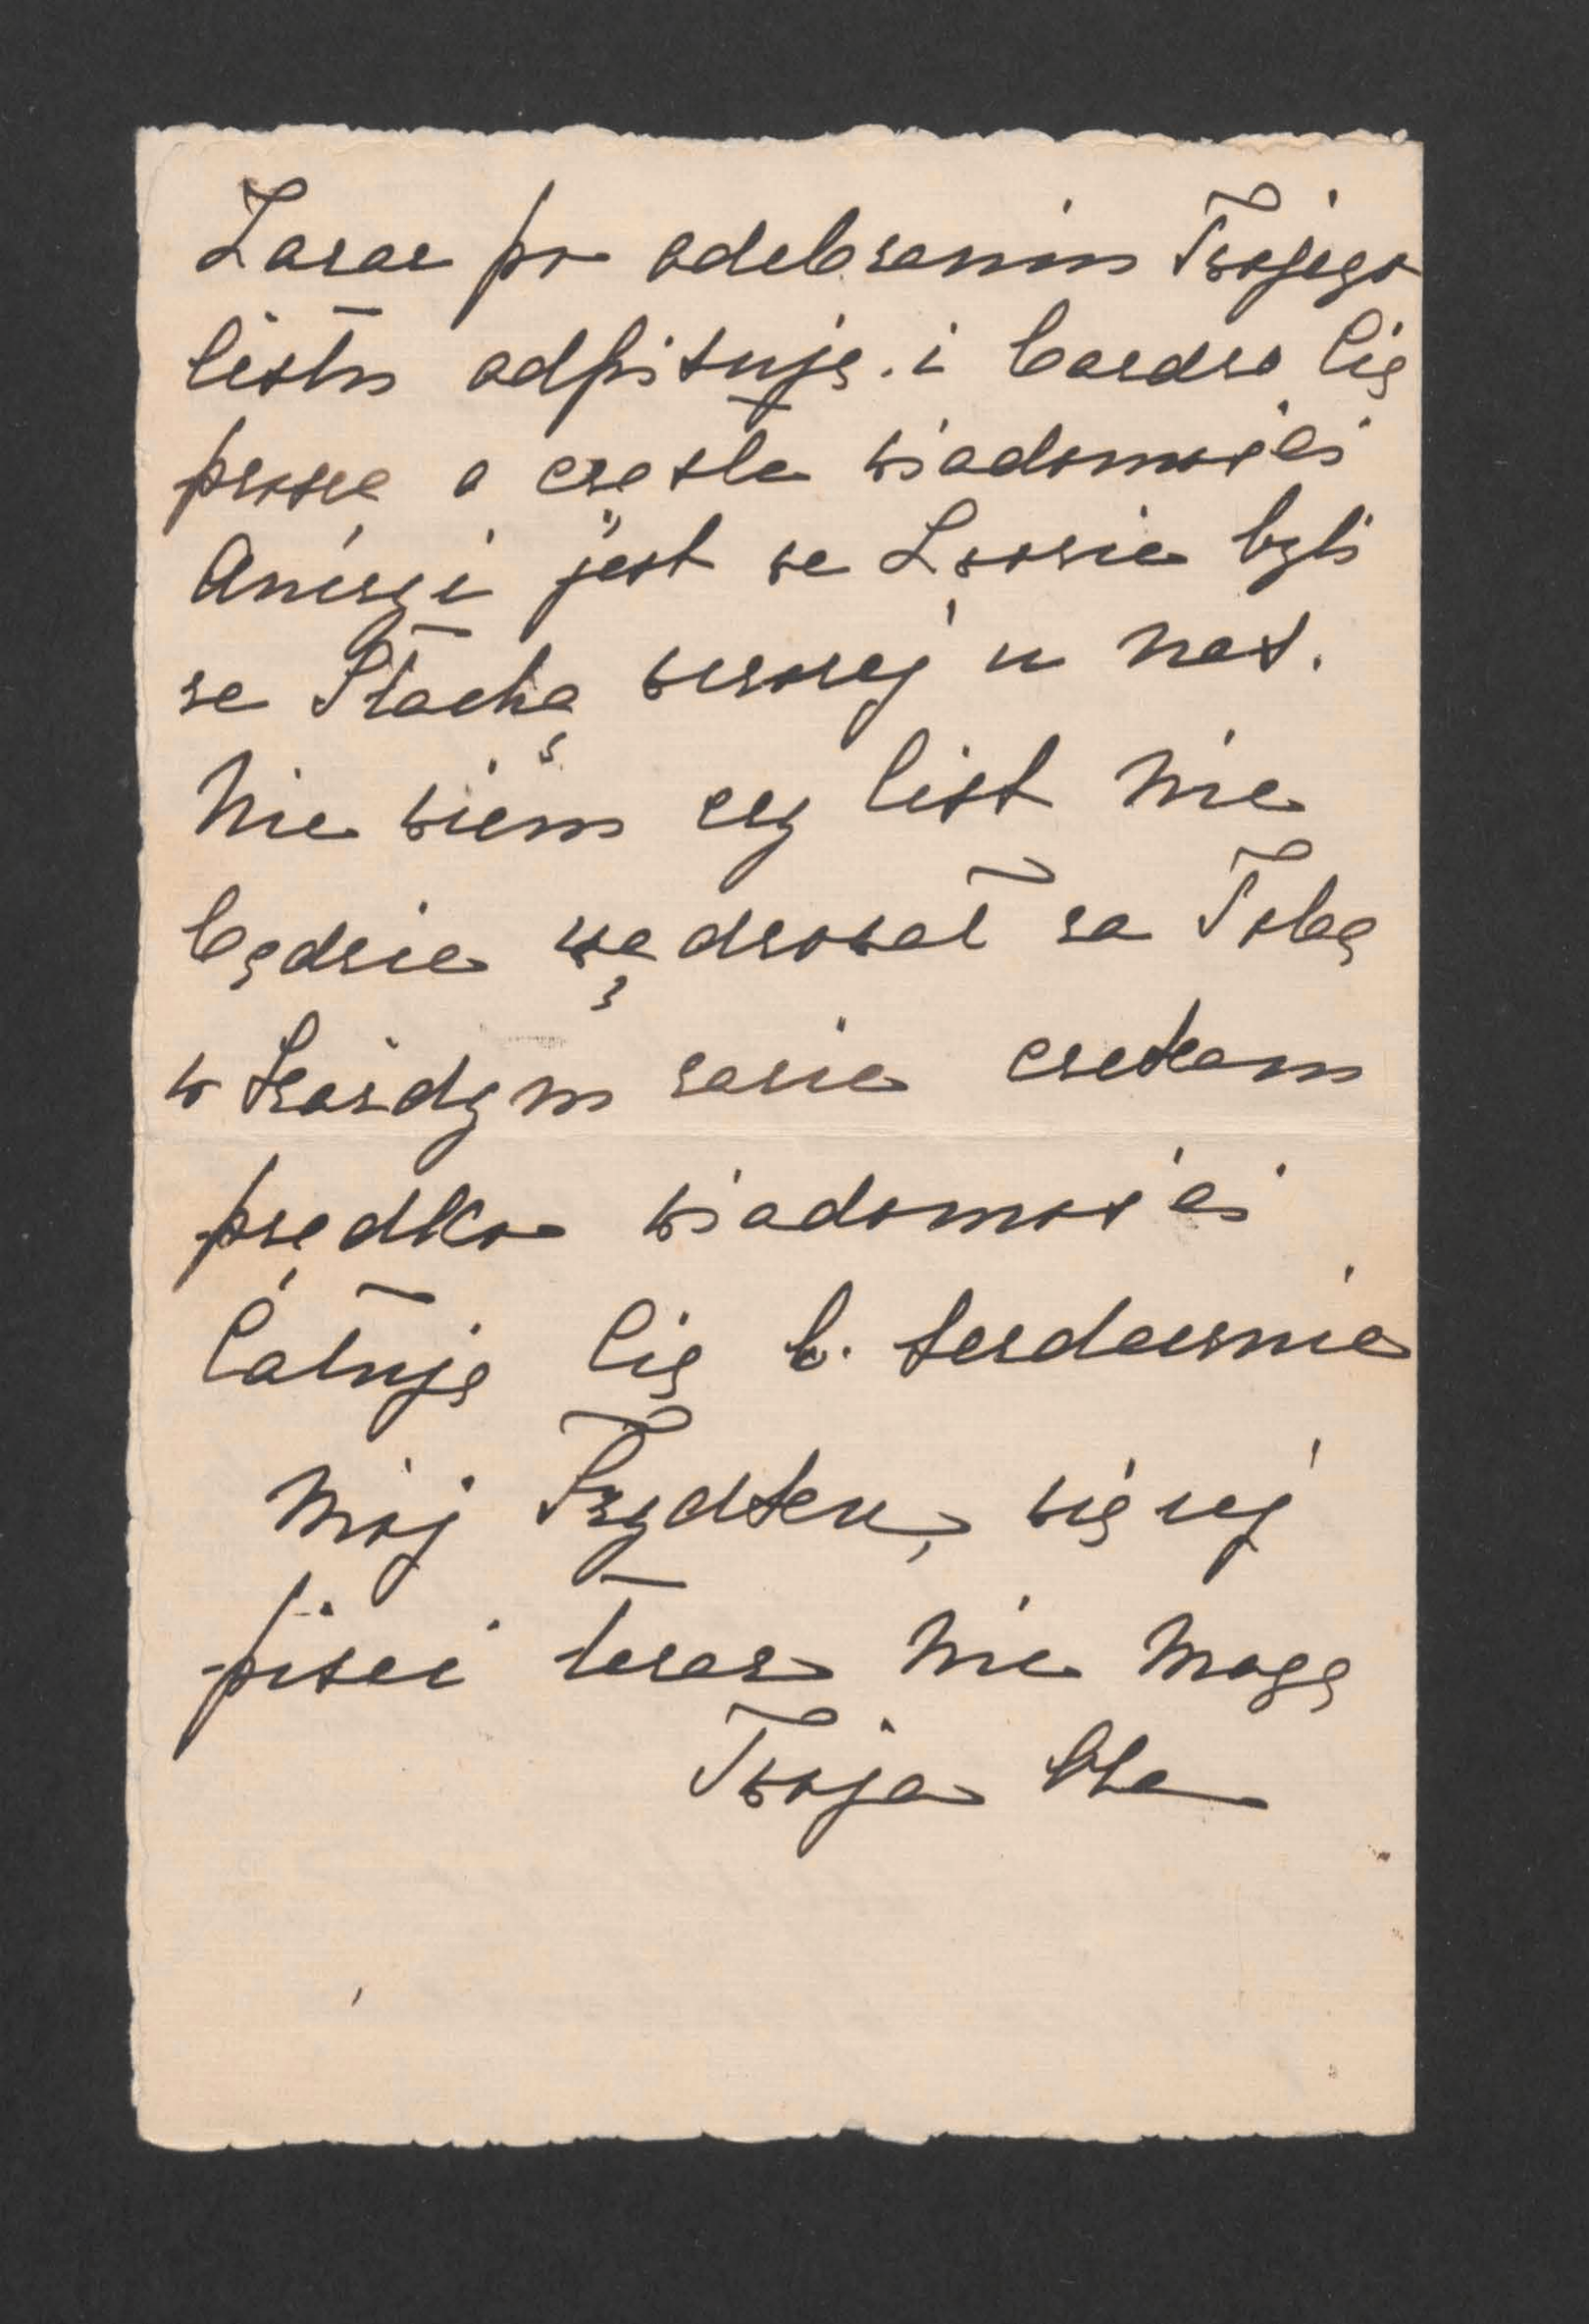 Zaraz po odebraniu Twojego
listu odpisuję. i bardzo Cię
proszę o częste wiadomości
jest we Lwowie byli
ze Stachą wczoraj u nas.
Nie wiem czy list nie
będzie wędrował za Tobą
w każdym razie czekam
prędko wiadomości
Całuję Cię b. serdecznie
mój Frydku, więcej
pisać teraz nie mogę
Twoja Ola